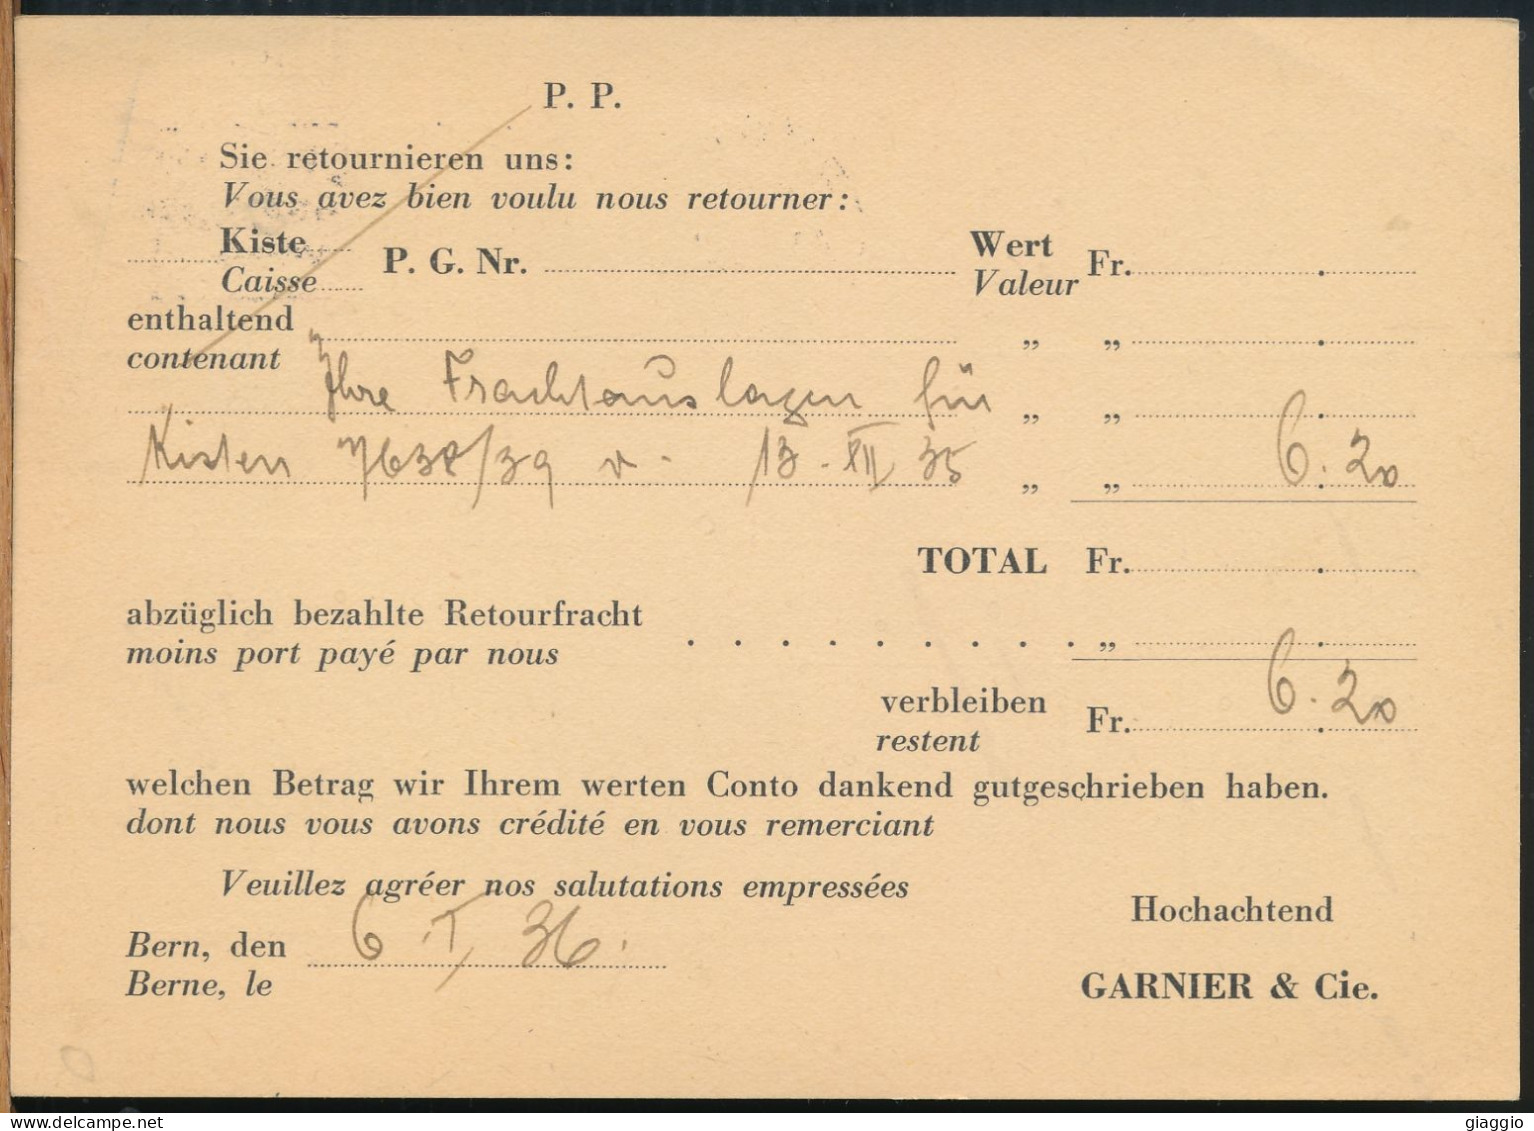 P. P.
Sie retournieren uns:
Vous avez bien voulu nous retourner:
Kiste
Caisse
P. G. Nr.
Wert
Valeur
Fr. .
enthaltend
contenant
„ „ .
Ihre Frachtauslagen für „ „ .
Kisten 7638/39 v. 13. XII 35 „ „ 6.20
TOTAL Fr. .
abzüglich bezahlte Retourfracht
moins port payé par nous
. . . . . . . . . „ .
verbleiben
restent
Fr. 6.20
welchen Betrag wir Ihrem werten Conto dankend gutgeschrieben haben.
dont nous vous avons crédité en vous remerciant
Veuillez agréer nos salutations empressées
Hochachtend
Bern, den 6. I. 36.
Berne, le
GARNIER & Cie.
giaggio